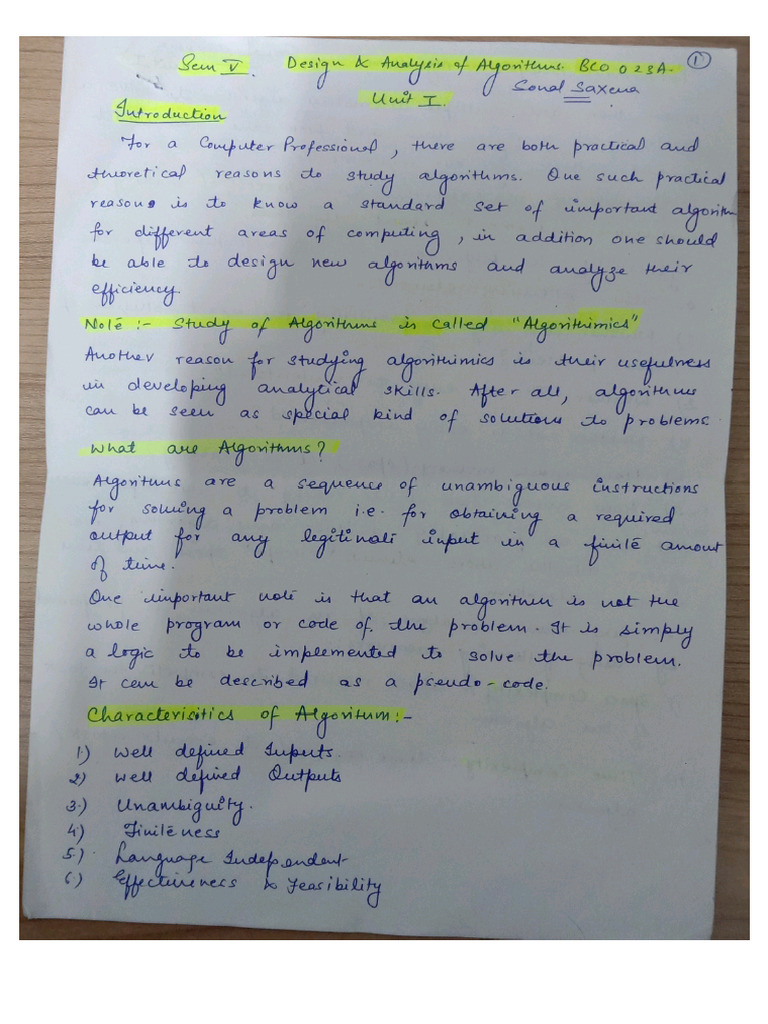 Sem V. Design & Analysis of Algorithms. BCO 023A. 1
Sonal Saxena
Unit I.
Introduction
For a Computer Professional, there are both practical and
theoretical reasons to study algorithms. One such practical
reasons is to know a standard set of important algorithm
for different areas of computing, in addition one should
be able to design new algorithms and analyze their
efficiency.
Note :- Study of Algorithms is called "Algorithimics"
Another reason for studying algorithimics is their usefulness
in developing analytical skills. After all, algorithms
can be seen as special kind of solutions to problems.
What are Algorithms?
Algorithms are a sequence of unambiguous instructions
for solving a problem i.e. for obtaining a required
output for any legitimate input in a finite amount
of time.
One important note is that an algorithm is not the
whole program or code of the problem. It is simply
a logic to be implemented to solve the problem.
It can be described as a pseudo-code.
Characterisitics of Algorithm:-
1.) Well defined Inputs.
2) Well defined Outputs
3.) Unambiguity.
4.) Finiteness
5.) Language Independent
6.) Effectiveness & Feasibility